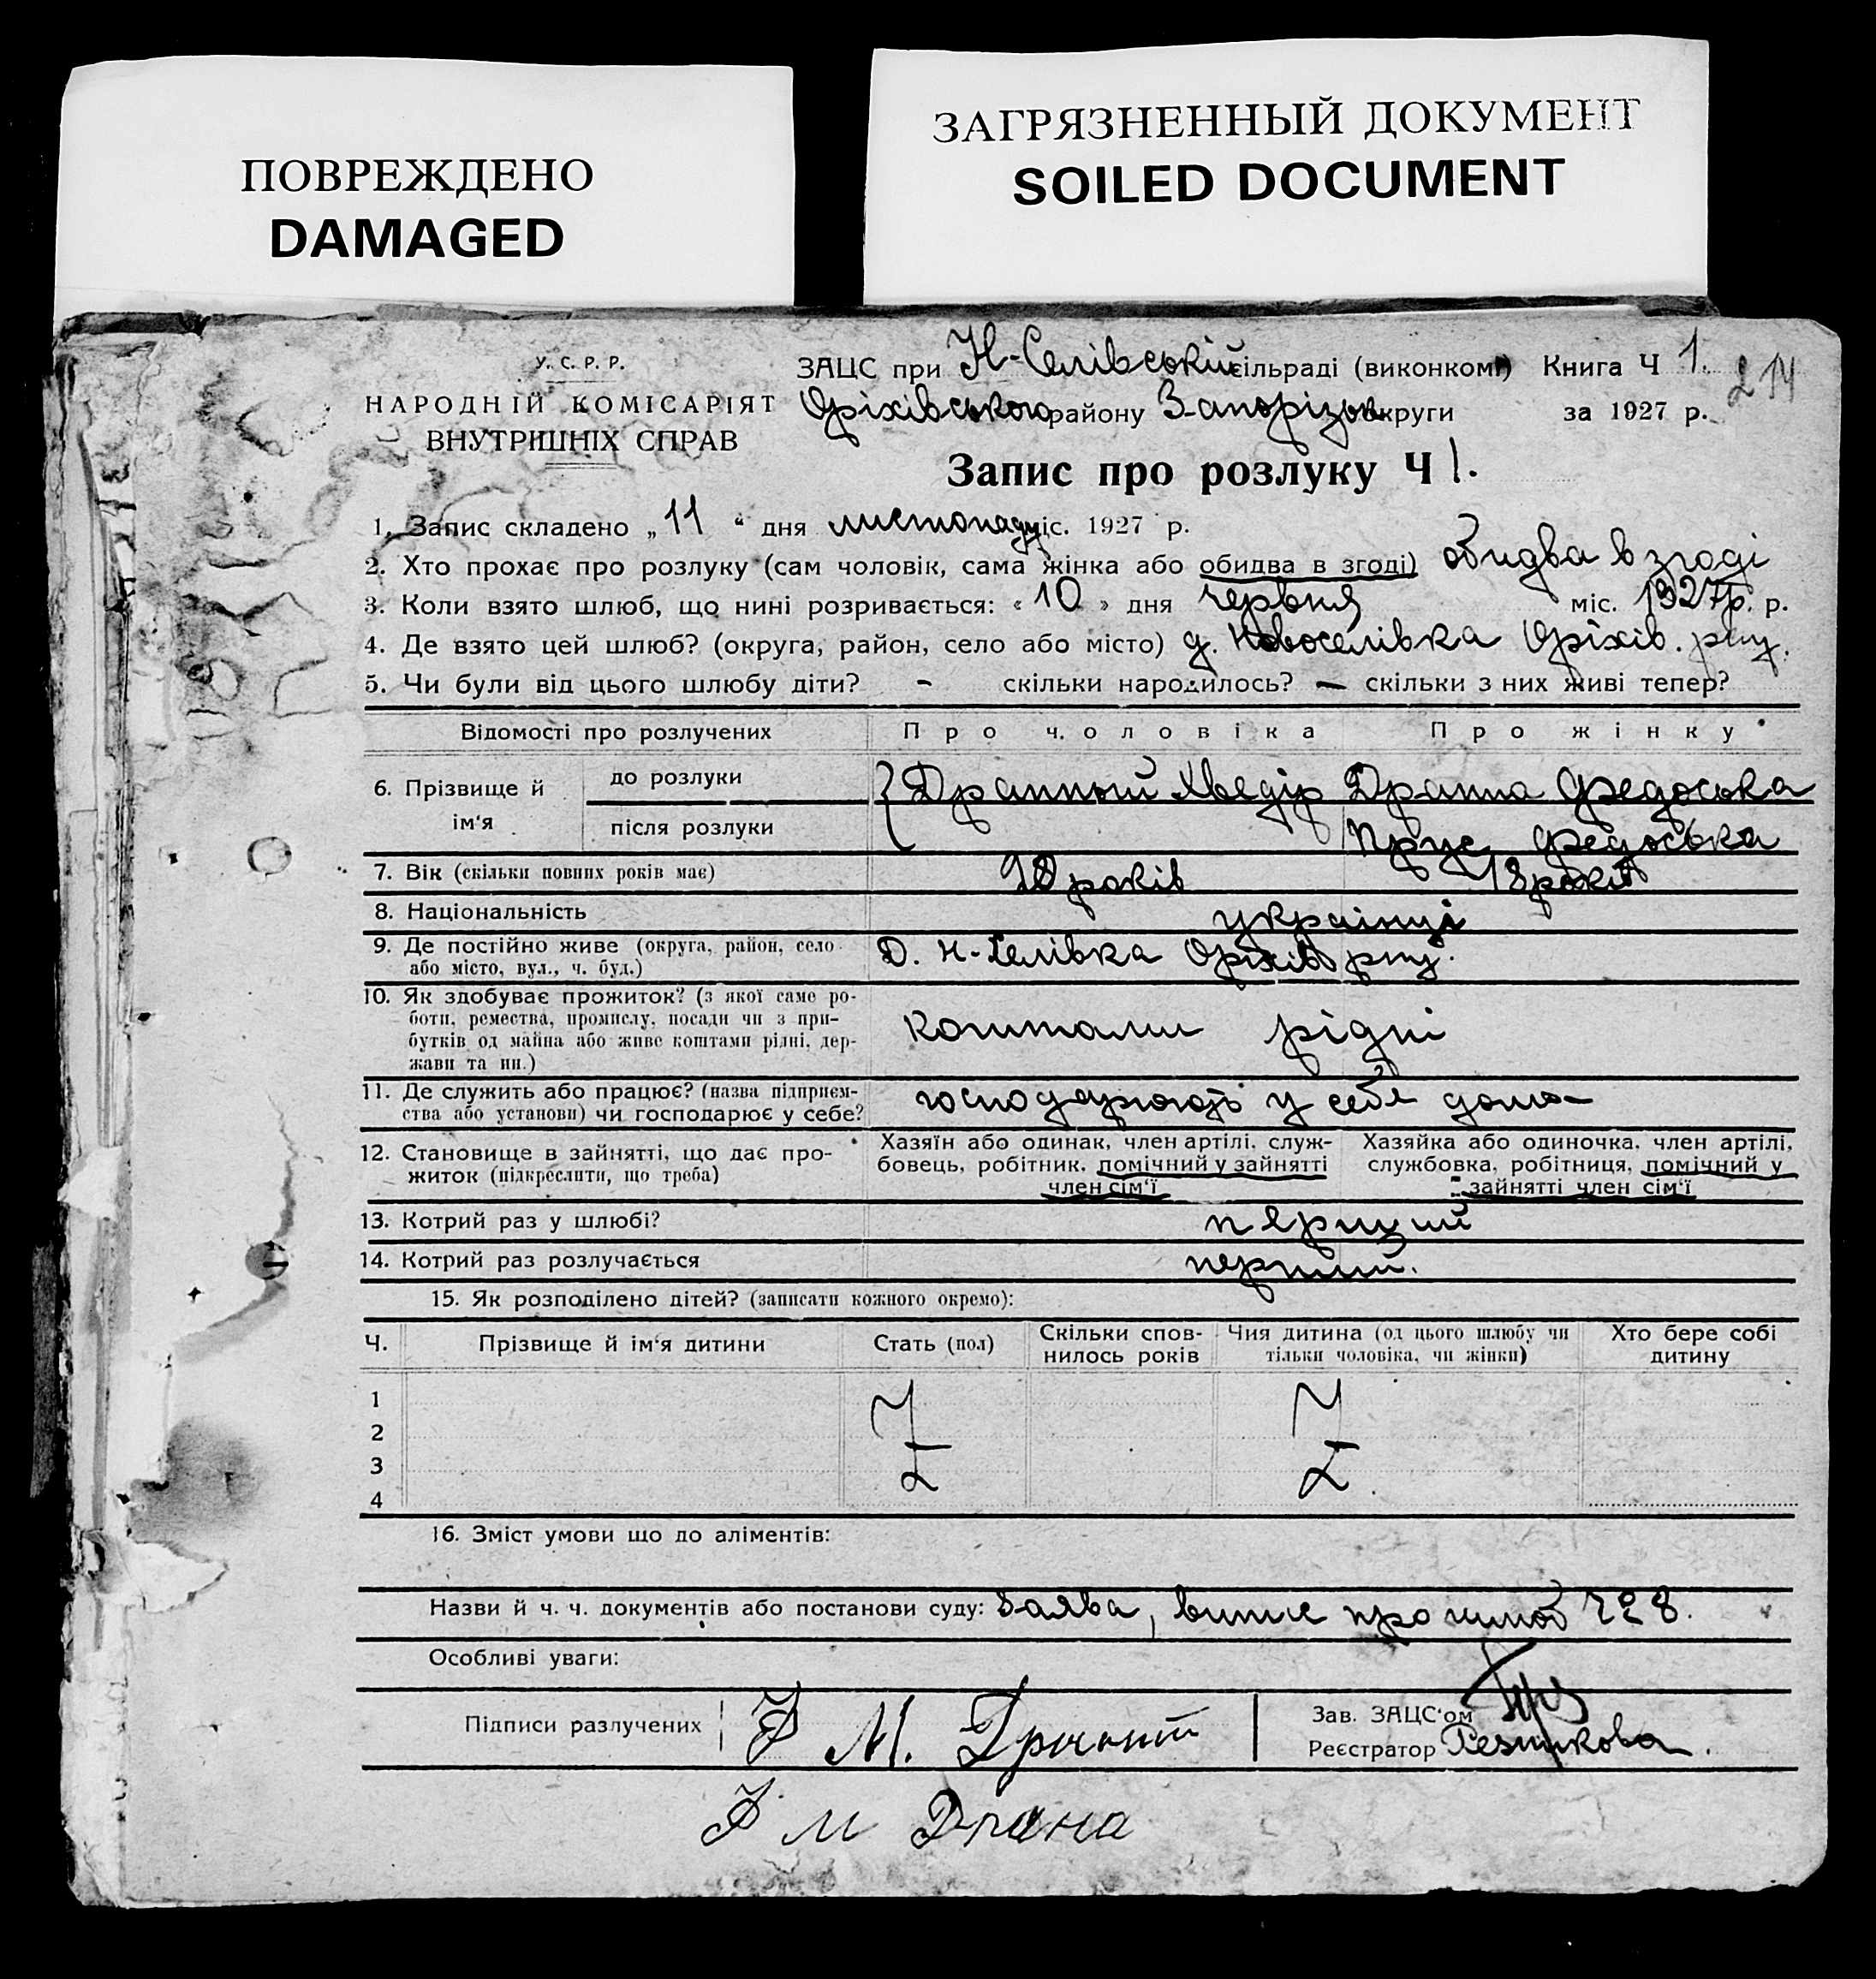 ПОВРЕЖДЕНО
DAMAGED
ЗАГРЯЗНЕННЫЙ ДОКУМЕНТ
SOILED DOCUMENT
У. С. Р. Р.
НАРОДНІЙ КОМІСАРІЯТ
ВНУТРІШНІХ СПРАВ
ЗАЦС при Н-Селівській сільраді (виконкомі) Книга Ч 1.
214
Оріхівського району Запорізьк округи за 1927 р.
Запис про розлуку Ч 1.
1. Запис складено „11“ дня листопаду міс. 1927 р.
2. Хто прохає про розлуку (сам чоловік, сама жінка або обидва в згоді) обидва в згоді
3. Коли взято шлюб, що нині розривається: «10» дня червня міс. 1927р. р.
4. Де взято цей шлюб? (округа, район, село або місто) д. Новоселівка Оріхів. рну.
5. Чи були від цього шлюбу діти? - скільки народилось? — скільки з них живі тепер?
Відомості про розлучених Про чоловіка Про жінку
6. Прізвище й ім'я
до розлуки Дранной Хведір Дранна Федоська
після розлуки Прус Федоська
7. Вік (скільки повних років має) років 18 років
8. Національність українці
9. Де постійно живе (округа, район, село або місто, вул., ч. буд.) Д. Н-Селівка Оріхів рну.
10. Як здобуває прожиток? (з якої саме ро-
боти, ремества, промислу, посади чи з при-
бутків од майна або живе коштами рідні, дер-
жави та ин.)
коштами рідні
11. Де служить або працює? (назва підприєм-
ства або установи) чи господарює у себе?
господарюють у себе дома
12. Становище в зайнятті, що дає про-
житок (підкреслити, що треба)
Хазяїн або одинак, член артілі, служ-
бовець, робітник, помічний у зайнятті
член сім'ї
Хазяйка або одиночка, член артілі,
службовка, робітниця, помічний у
зайнятті член сім'ї
13. Котрий раз у шлюбі? перший
14. Котрий раз розлучається перший.
15. Як розподілено дітей? (записати кожного окремо):
Ч. Прізвище й ім'я дитини Стать (пол) Скільки спов-нилось років Чия дитина (од цього шлюбу чи тільки чоловіка, чи жінки) Хто бере собі дитину
1
2
3
4
16. Зміст умови що до аліментів:
Назви й ч. ч. документів або постанови суду: Заява, випис про шлюб
Особливі уваги:
Підписи разлучених Ф М. Зав. ЗАЦС'ом
Реєстратор Резникова.
Ф М